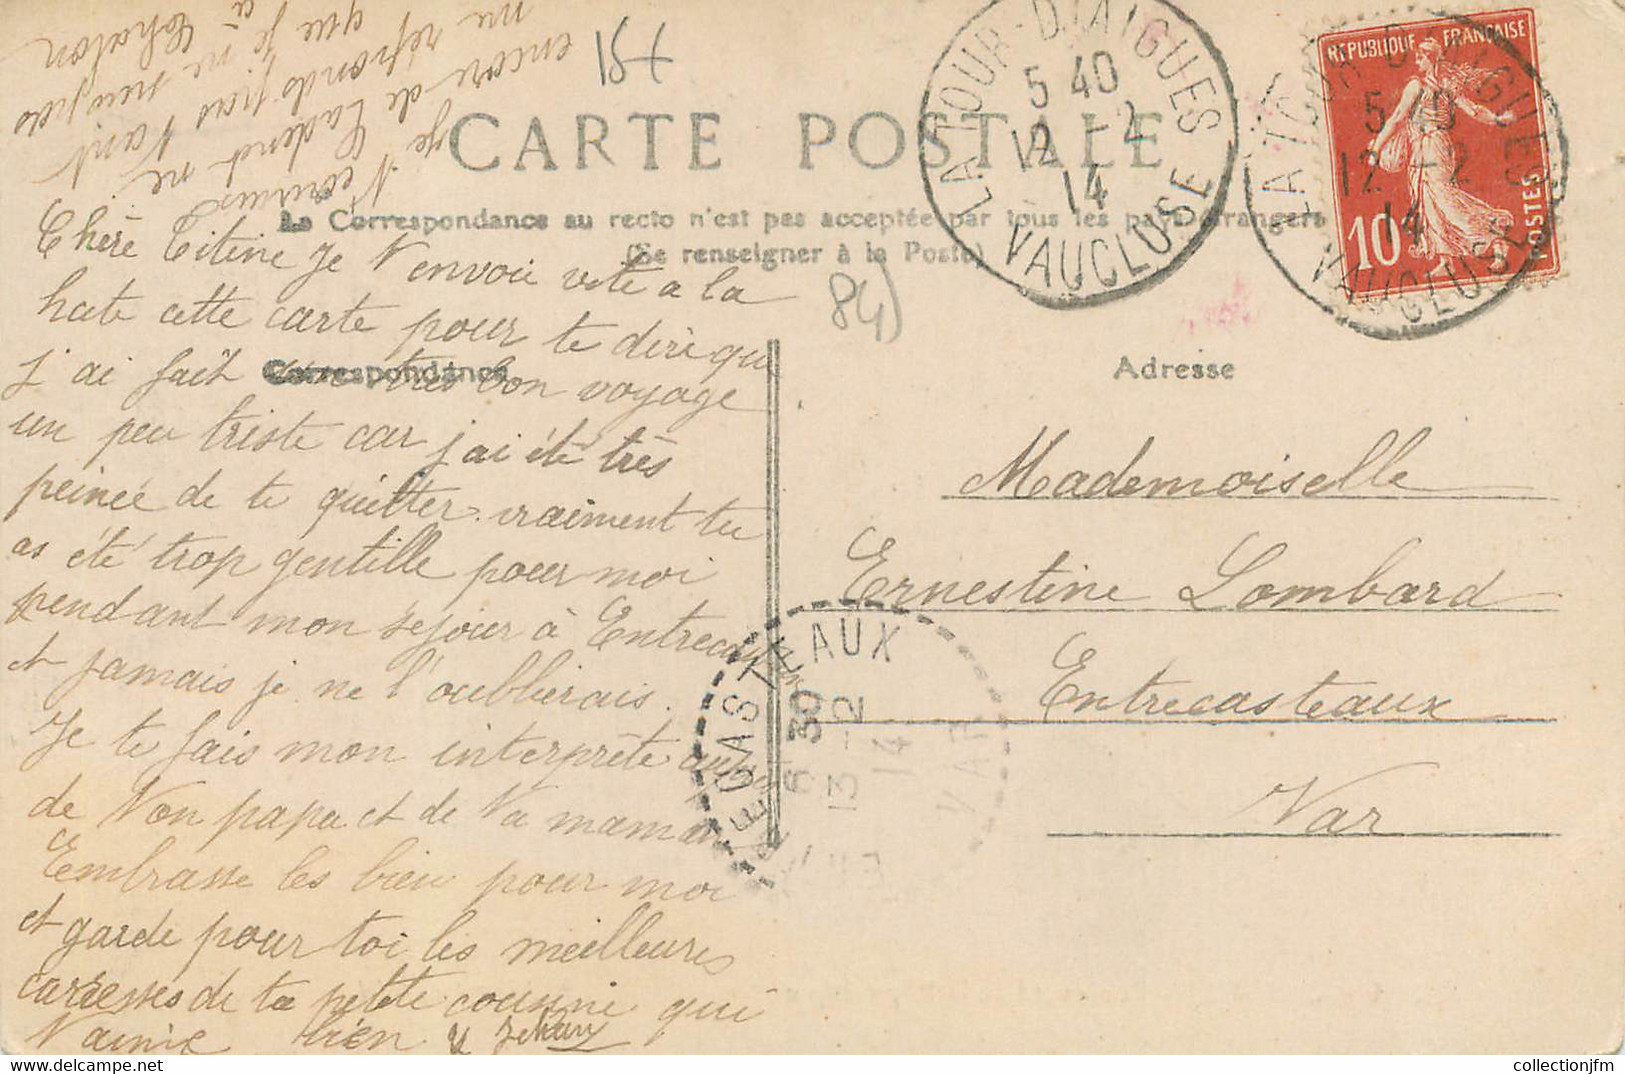 CARTE POSTALE
La Correspondance au recto n'est pas acceptée par tous les pays étrangers
(Se renseigner à la Poste)
Correspondance
Adresse
Chère Titine Je t'envoie vite a la
hate cette carte pour te dire que
j'ai fait un très bon voyage
un peu triste car j'ai été très
peinée de te quitter vraiment tu
as été trop gentille pour moi
pendant mon sejour à Entrecasteaux
et jamais je ne l'oublierais.
Je te fais mon interprète auprès
de Ton papa et de Ta maman
Embrasse les bien pour moi
et garde pour toi les meilleures
caresses de ta petite cousine qui
t'aime bien
je t'écrirais
encore de Cadenet ne
me réponds pas avant
que je ne sois pas
à
Mademoiselle
Ernestine Lombard
Entrecasteaux
Var
84)
LA TOUR-D'AIGUES
5 40
12 -2
14
VAUCLUSE
REPUBLIQUE FRANÇAISE
10
POSTES
LA TOUR-D'AIGUES
5 40
12 -2
14
VAUCLUSE
ENTRECASTEAUX
6 30
13 -2
14
VAR
collectionjfm